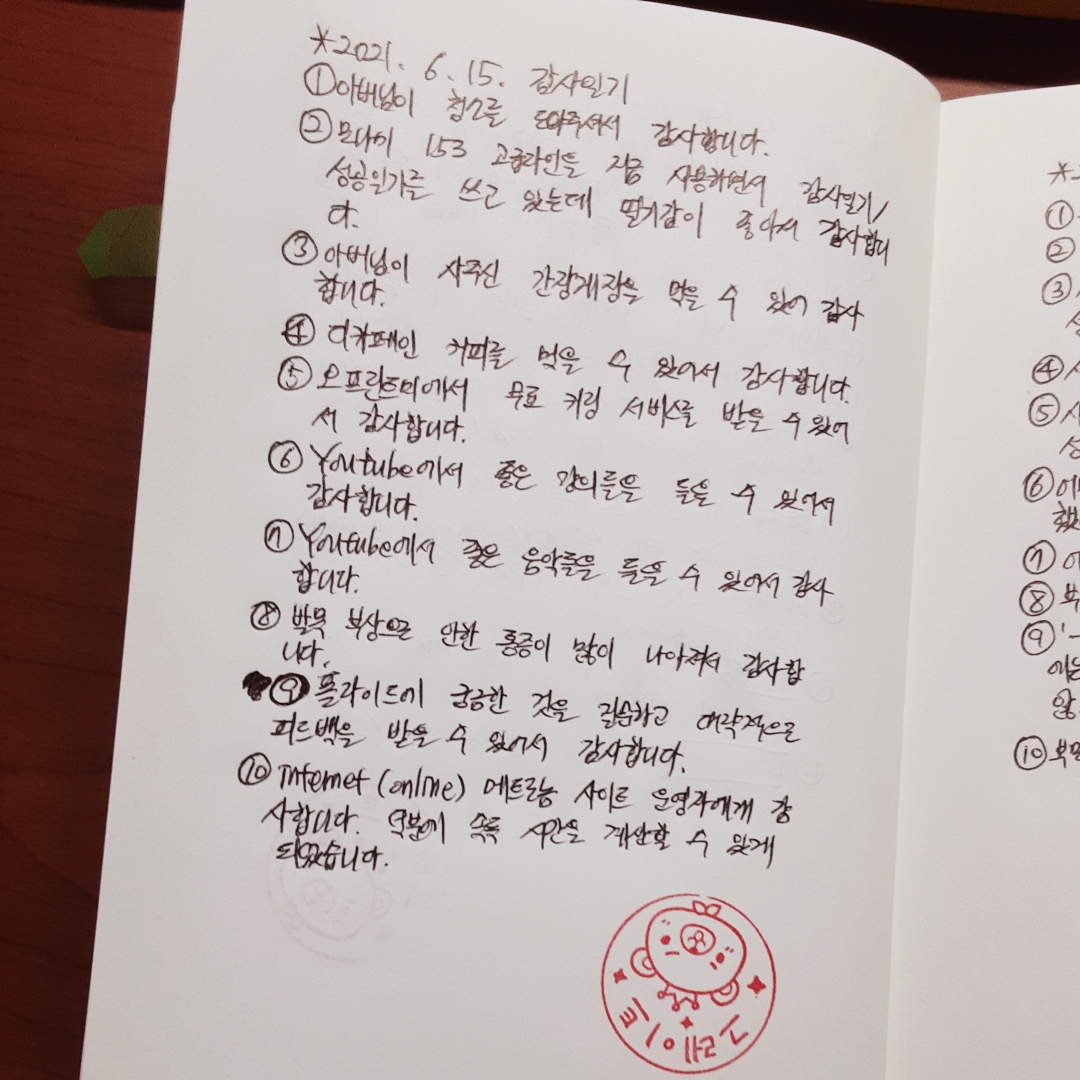 *2021. 6. 15. 감사일기
①아버님이 청소를 도와주셔서 감사합니다.
② 모나미 153 고급라인을 지금 사용하면서 감사일기/
성공일기를 쓰고 있는데 필기감이 좋아서 감사합니
다.
③ 아버님이 사주신 간장게장을 먹을 수 있어 감사
합니다.
④ 디카페인 커피를 먹을 수 있어서 감사합니다.
⑤ 오프린트미에서 무료 커팅 서비스를 받을 수 있어
서 감사합니다.
⑥ Youtube에서 좋은 강의들을 들을 수 있어서
감사합니다.
⑦ Youtube에서 좋은 음악들을 들을 수 있어서 감사
합니다.
⑧ 발목 부상으로 인한 통증이 많이 나아져서 감사합
니다.
⑨ 플라이드에 궁금한 것을 질문하고 대략적으로
피드백을 받을 수 있어서 감사합니다.
⑩ internet (online) 메트로놈 사이트 운영자에게 감
사합니다. 덕분에 속독 시간을 계산할 수 있게
되었습니다.
*2
①
②
③
④
⑤
⑥
⑦
⑧
⑨
⑩